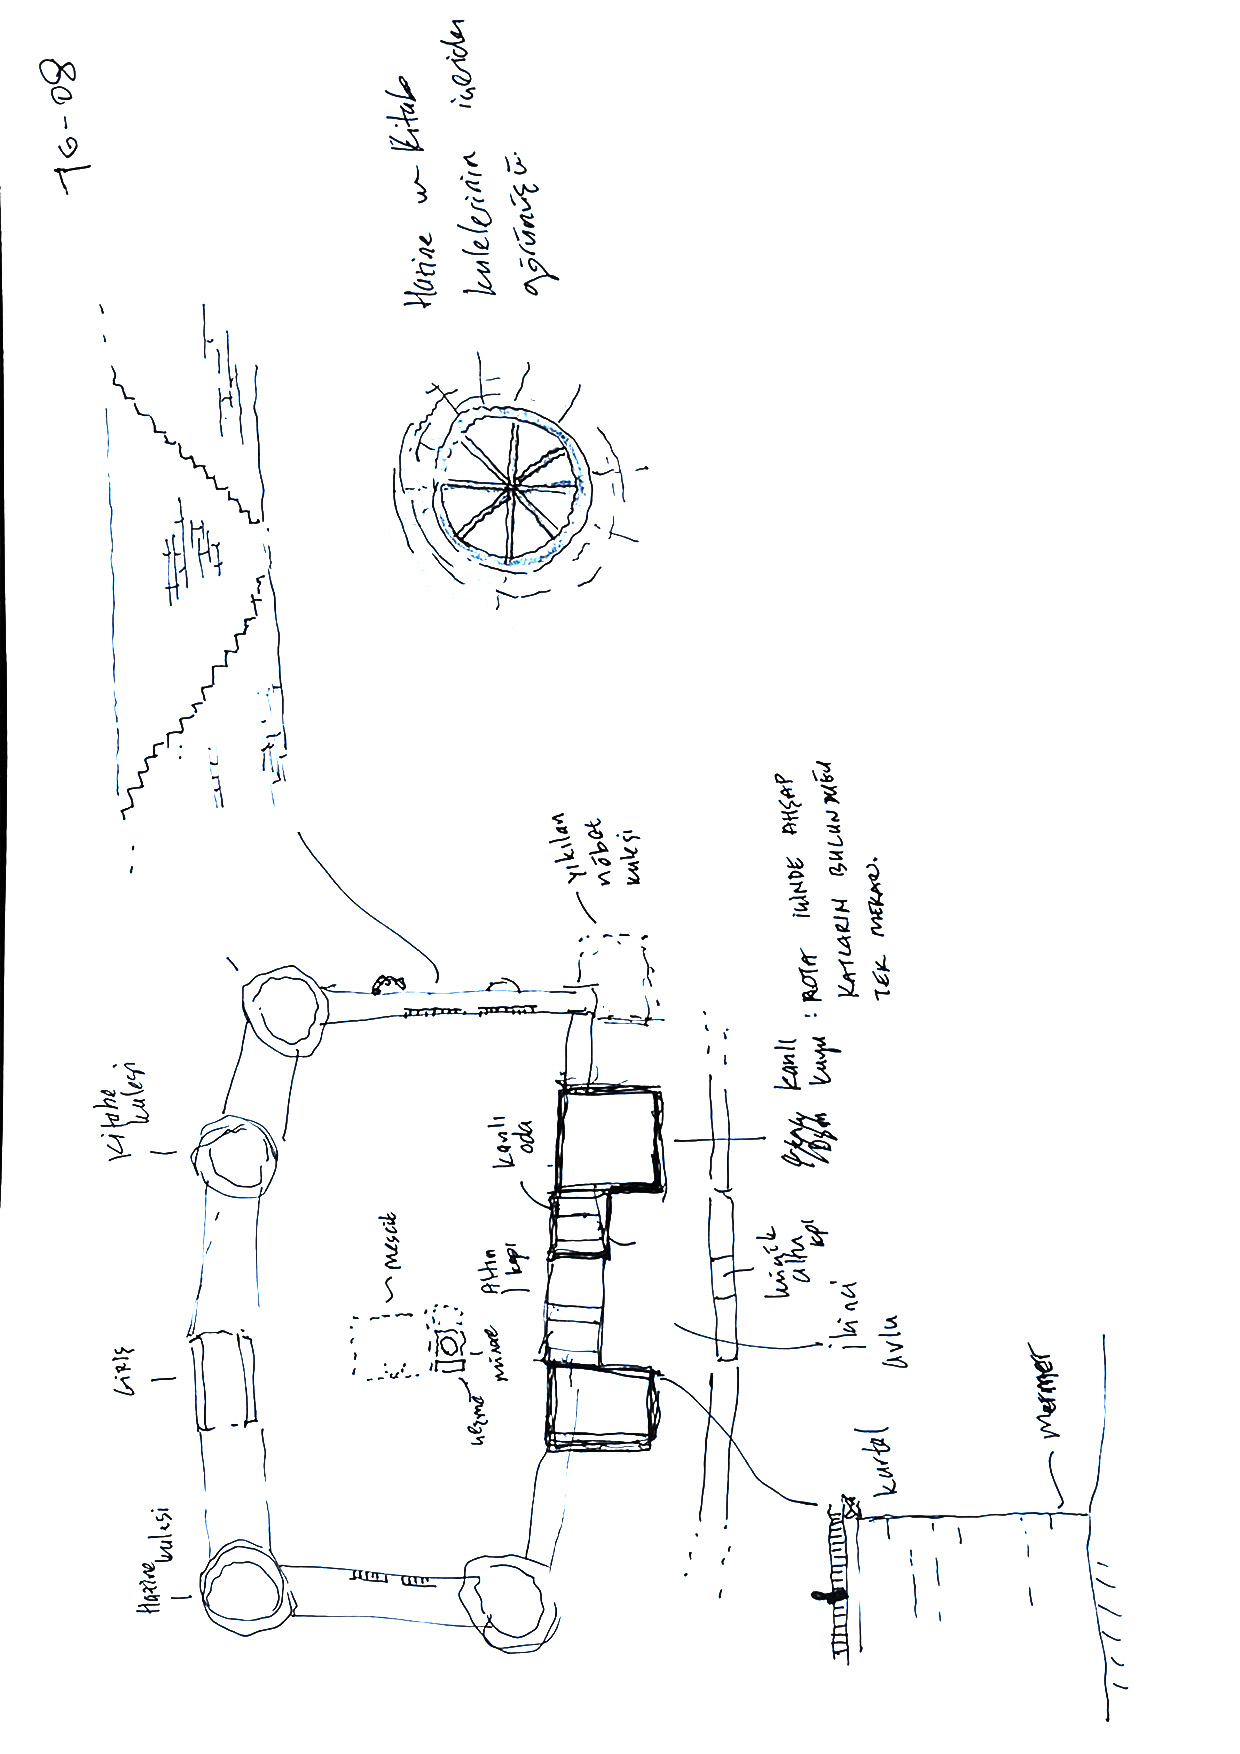 TG-08
Hazine
kulesi
GİRİŞ
Kitabe
kulesi
mescit
çeşme
minare
Altın
kapı
kanlı
oda
yıkılan
nöbet
kulesi
Hazine ve Kitabe
kulelerinin içeriden
görünüşü.
küçük
altın
kpı
ikinci
avlu
kanlı
kuyu : ROTA İÇİNDE AHŞAP
KATLARIN BULUNDUĞU
TEK MEKAN.
kartal
mermer